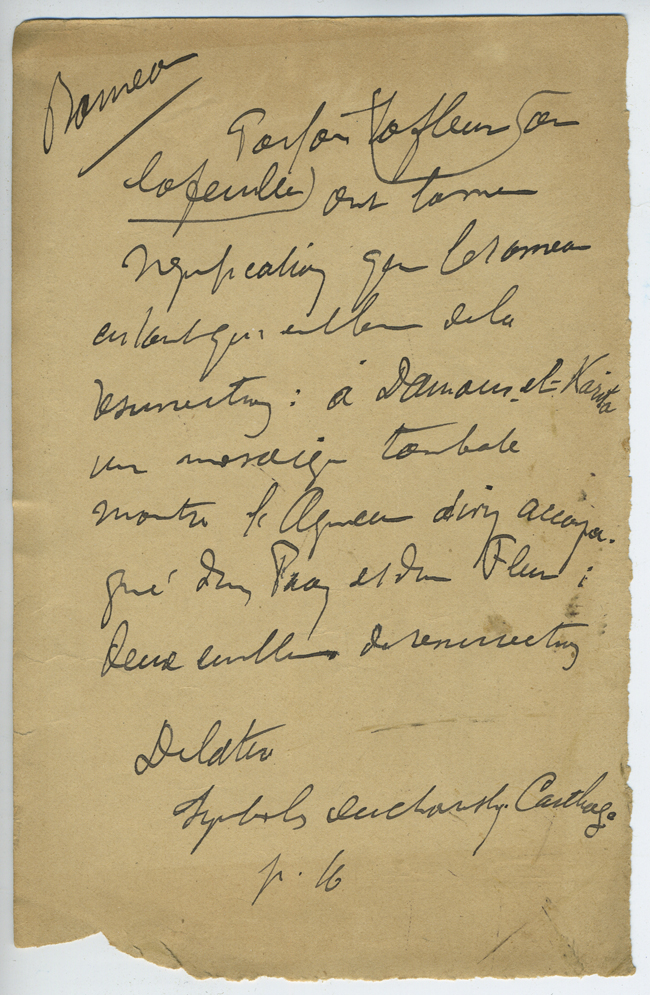 Rameau
Parfois (la fleur (ou
la feuille) ont la même
signification que le rameau
en tant que emblème de la
résurrection : à Damous-el-Karita
une mosaïque tombale
montre l'Agneau divin accompa-
gné d'un Paon et d'une Fleur ;
deux emblèmes de résurrection
Delattre
Symboles eucharistiq. Carthage
p. 16